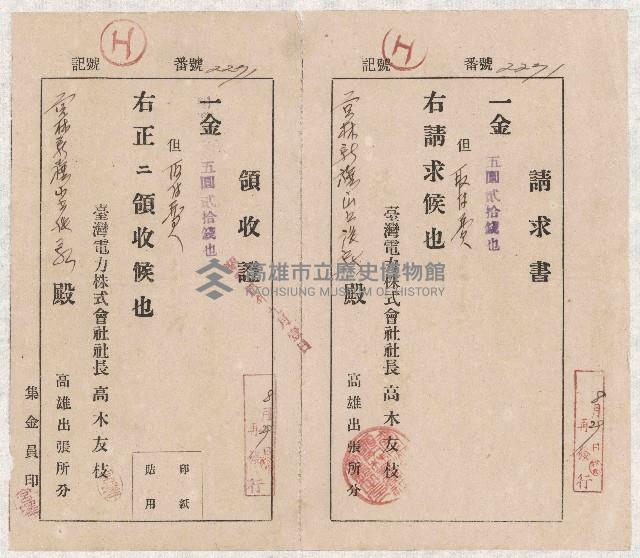 番號 2271
記號 H
請求書
一金 五圓貳拾錢也
但 取付費
右請求候也
臺灣電力株式會社社長 高木友枝
高雄出張所分
殿
8月29日
再發行
番號 2271
記號 H
領收證
一金 五圓貳拾錢也
但 取付費
右正ニ領收候也
臺灣電力株式會社社長 高木友枝
高雄出張所分
殿
集金員印
印紙
貼用
8月29日
再發行
高雄市立歷史博物館
KAOHSIUNG MUSEUM OF HISTORY